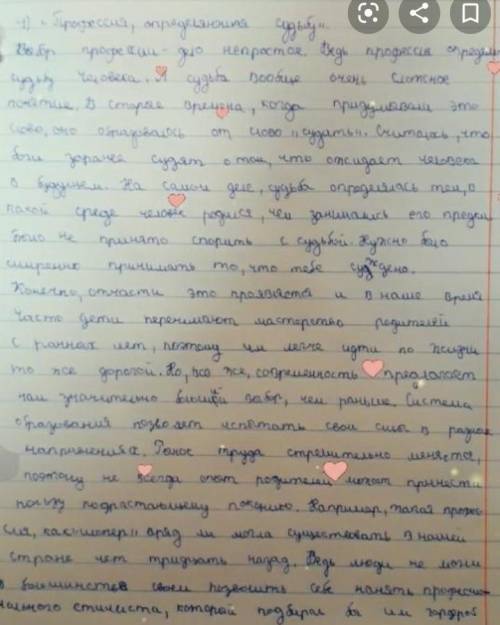 1) "Профессия, определяющая судьбу".
Выбор профессии - дело непростое. Ведь профессия определ
судьбу человека. А судьба вообще очень сложное
понятие. В старые времена, когда придумывали это
слово, оно образовалось от слово "судить". Считалось, что
боги заранее судят о том, что ожидает человека
в будущем. На самом деле, судьба определялась тем, в
какой среде человек родился, чем занимались его предки.
Было не принято спорить с судьбой. Нужно было
смиренно принимать то, что тебе суждено.
Конечно, отчасти это проявяется и в наше время
Часто дети перенимают мастерство родителей
с ранних лет, поэтому им легче идти по жизни
то же дорогой. Но, все же, современность предлагает
нам значительно больший выбор, чем раньше. Система
образования позволяет испытать свои силы в разных
направлениях. Рынок труда стремительно меняется,
поэтому не всегда опыт родителей может принести
пользу подрастающему поколению. Например, такая профес-
сия, как шопер" вряд ли могла существовать в нашей
стране лет тридцать назад. Ведь люди не могли
в большинстве своем позволить себе нанять професcио-
нального стилиста, который подбирал бы им гардероб